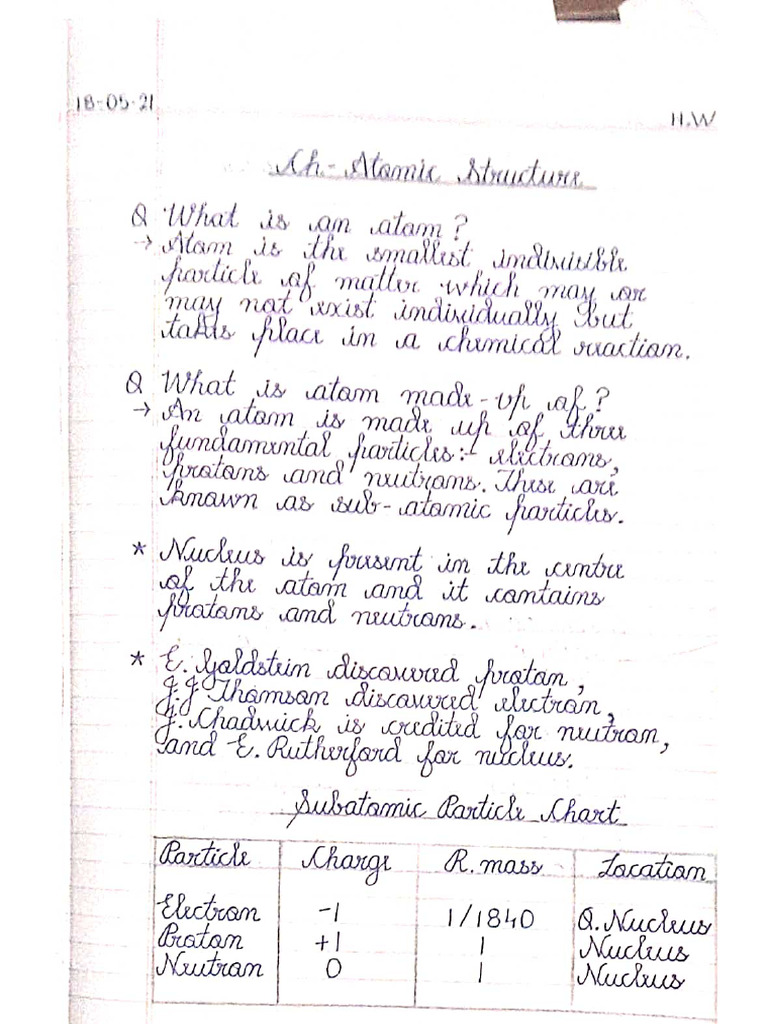 18-05-21
H.W
Ch- Atomic Structure
Q What is an atom?
→ Atom is the smallest indivisible
particle of matter which may or
may not exist individually but
takes place in a chemical reaction.
Q What is atom made-up of?
→ An atom is made up of three
fundamental particles:- electrons,
protons and neutrons. These are
known as sub-atomic particles.
* Nucleus is present in the centre
of the atom and it contains
protons and neutrons.
* E. Goldstein discovered proton,
J.J Thomson discovered electron,
J. Chadwick is credited for neutron,
and E. Rutherford for nucleus.
Subatomic Particle Chart
Particle Charge R. mass Location
Electron -1 1/1840 O. Nucleus
Proton +1 1 Nucleus
Neutron 0 1 Nucleus